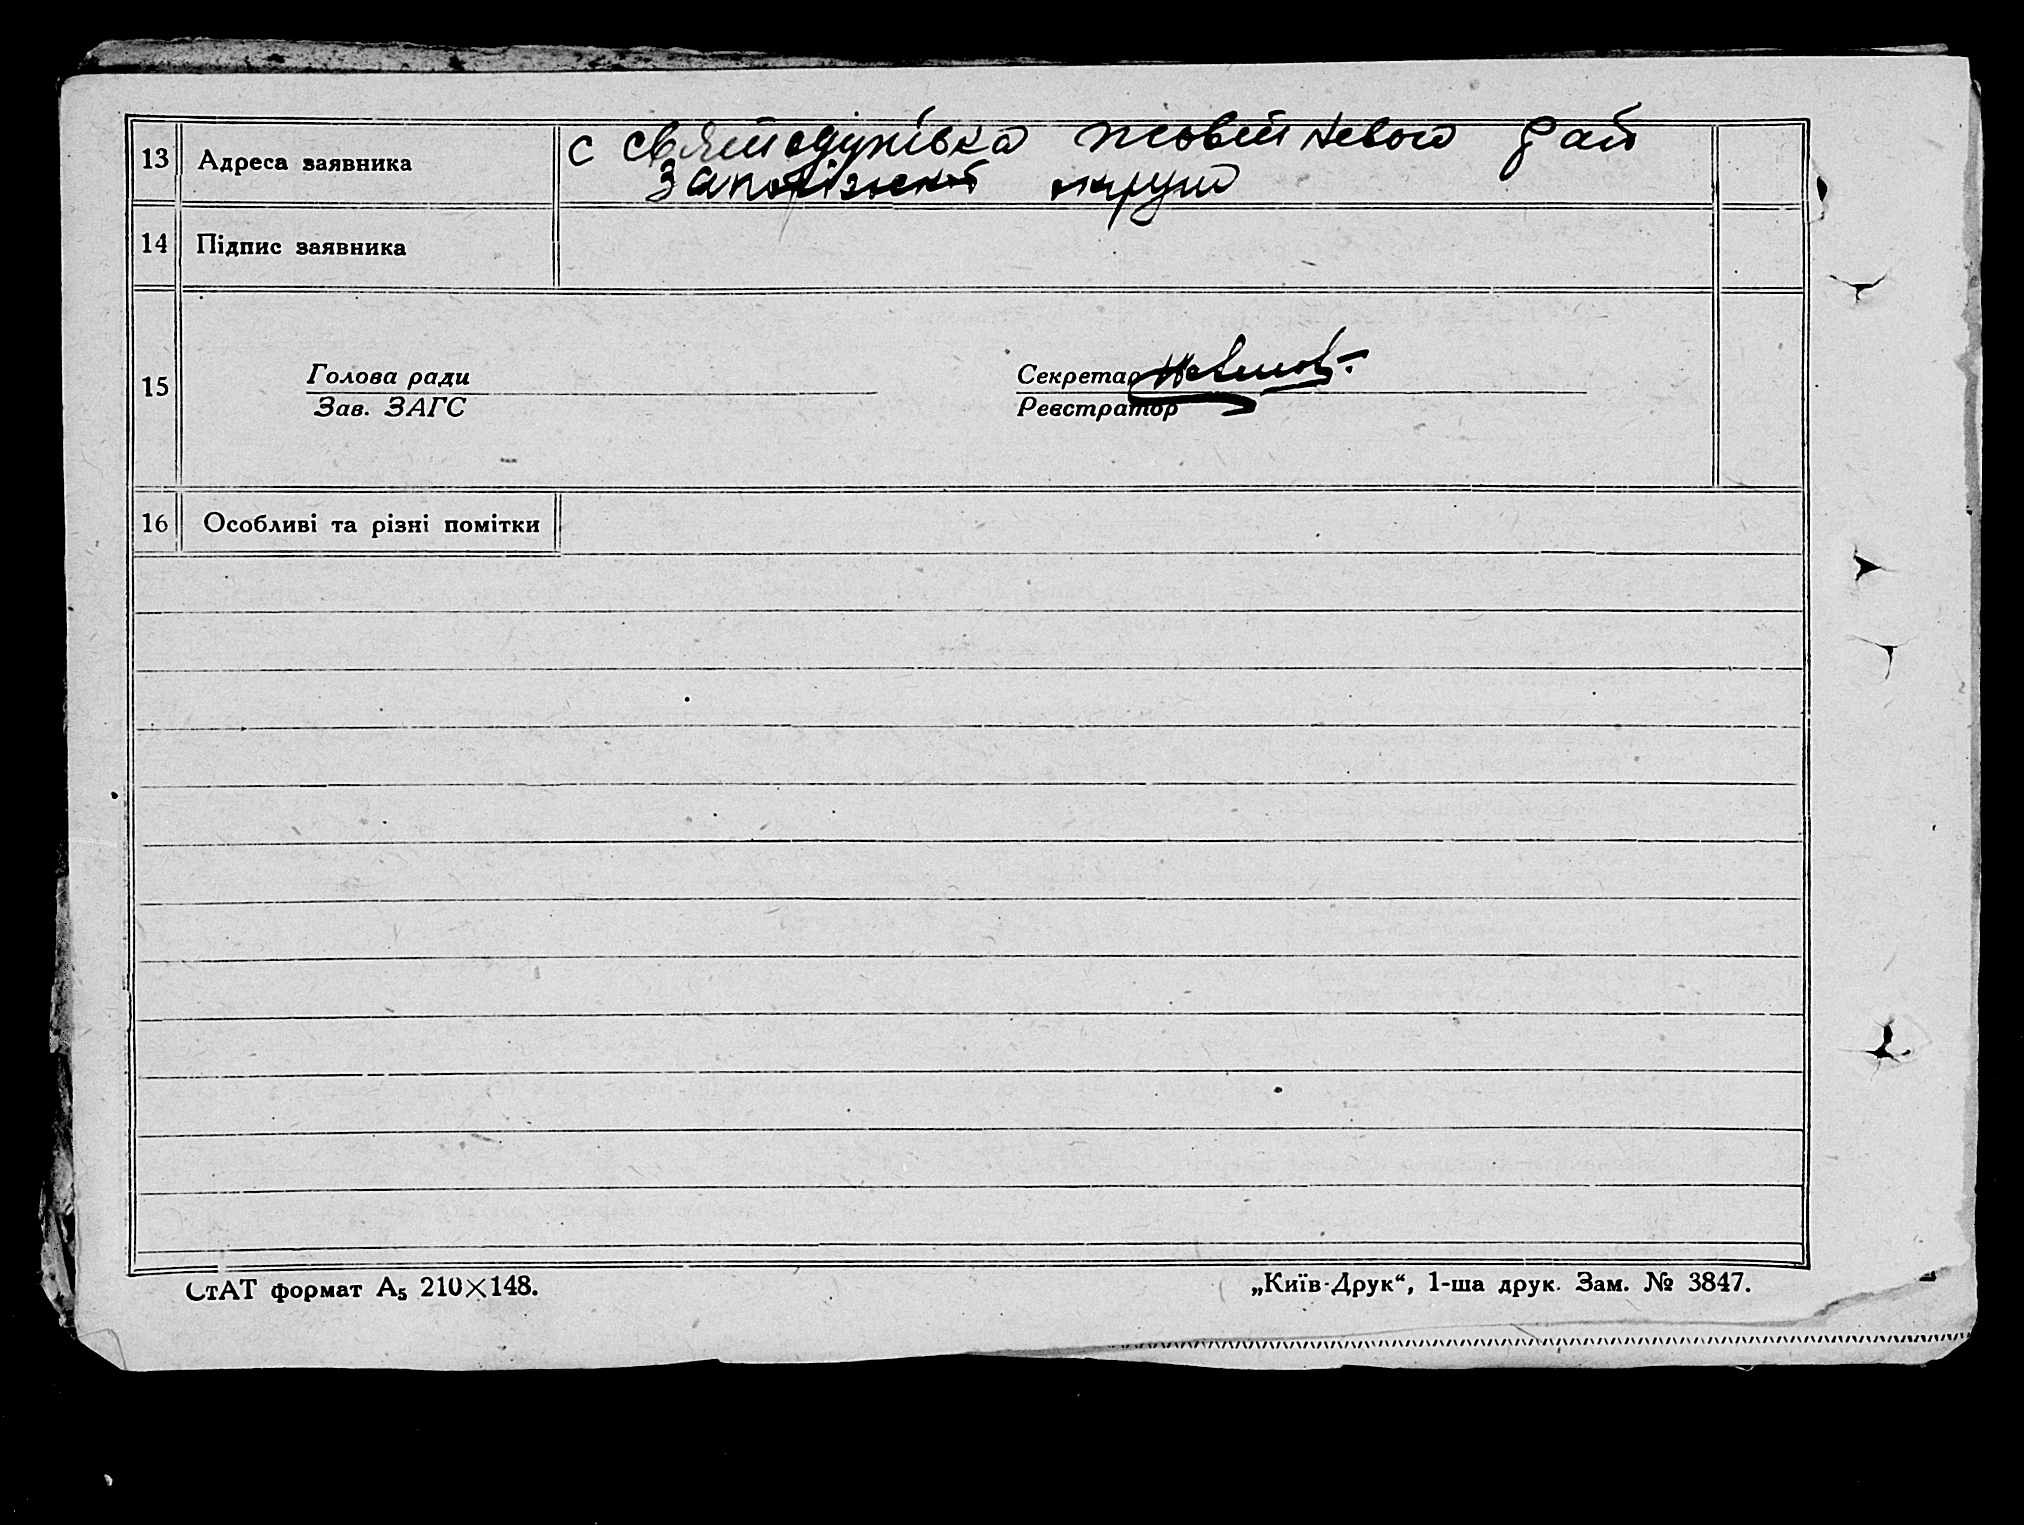 13 Адреса заявника с Святодухівка Жовтневого рай
Запорізької округи
14 Підпис заявника
15 Голова ради Секретар
Зав. ЗАГС Реєстратор
16 Особливі та різні помітки
СтАТ формат А₅ 210×148. „Київ-Друк“, 1-ша друк. Зам. № 3847.